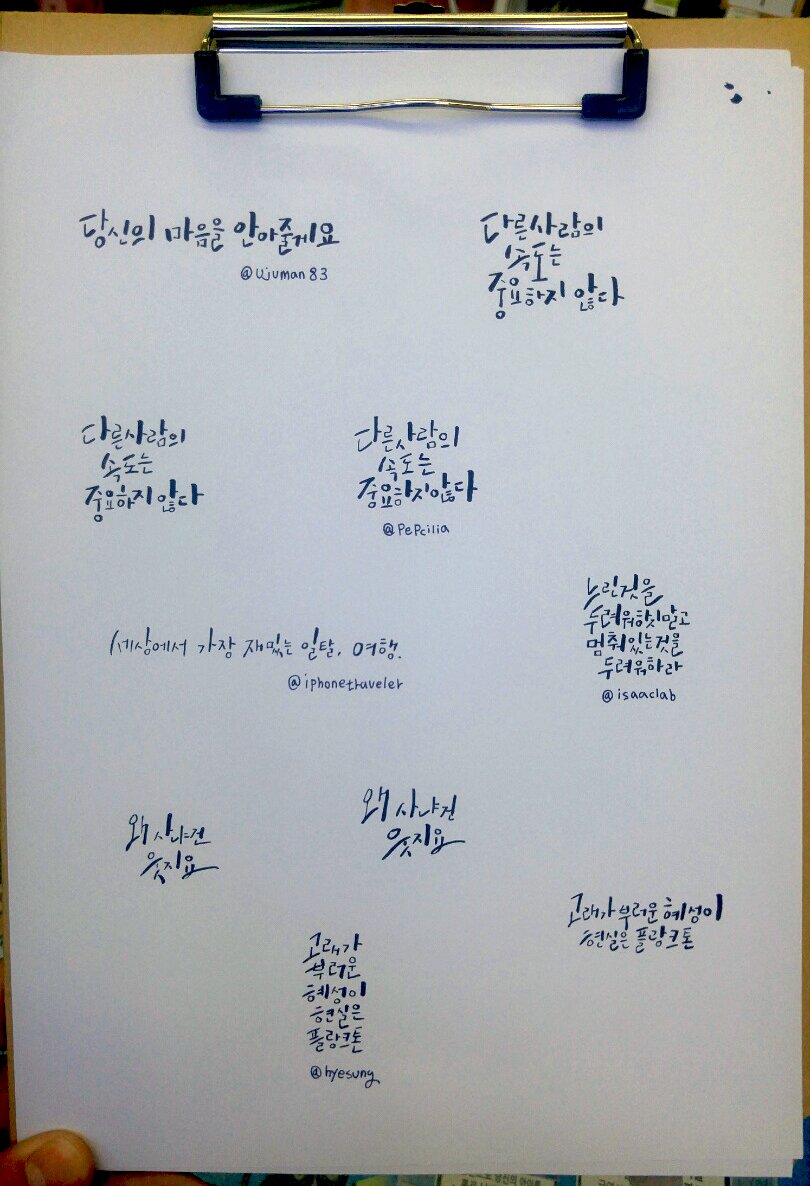 당신의 마음을 안아줄게요
@ujuman83
다른사람의
속도는
중요하지 않다
다른사람의
속도는
중요하지 않다
다른사람의
속도는
중요하지않다
@pepcilia
세상에서 가장 재밌는 일탈, 여행.
@iphonetraveler
느린것을
두려워하지말고
멈춰있는것을
두려워하라
@isaaclab
왜 사냐건
웃지요
왜 사냐건
웃지요
고래가 부러운 혜성이
현실은 플랑크톤
고래가
부러운
혜성이
현실은
플랑크톤
@hyesung